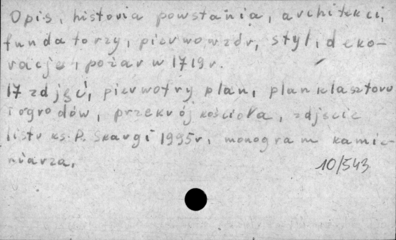 Opis, historia powstania, architekci,
fundatorzy, pierwowzór, styl, deko-
racje, pożar w 1719r.
17 zdjęć, pierwotny plan, plan klasztoru
i ogrodów, przekrój kościoła, zdjęcie
listu ks. P. Skargi 1595r, monogram kamie-
niarza.
10/543